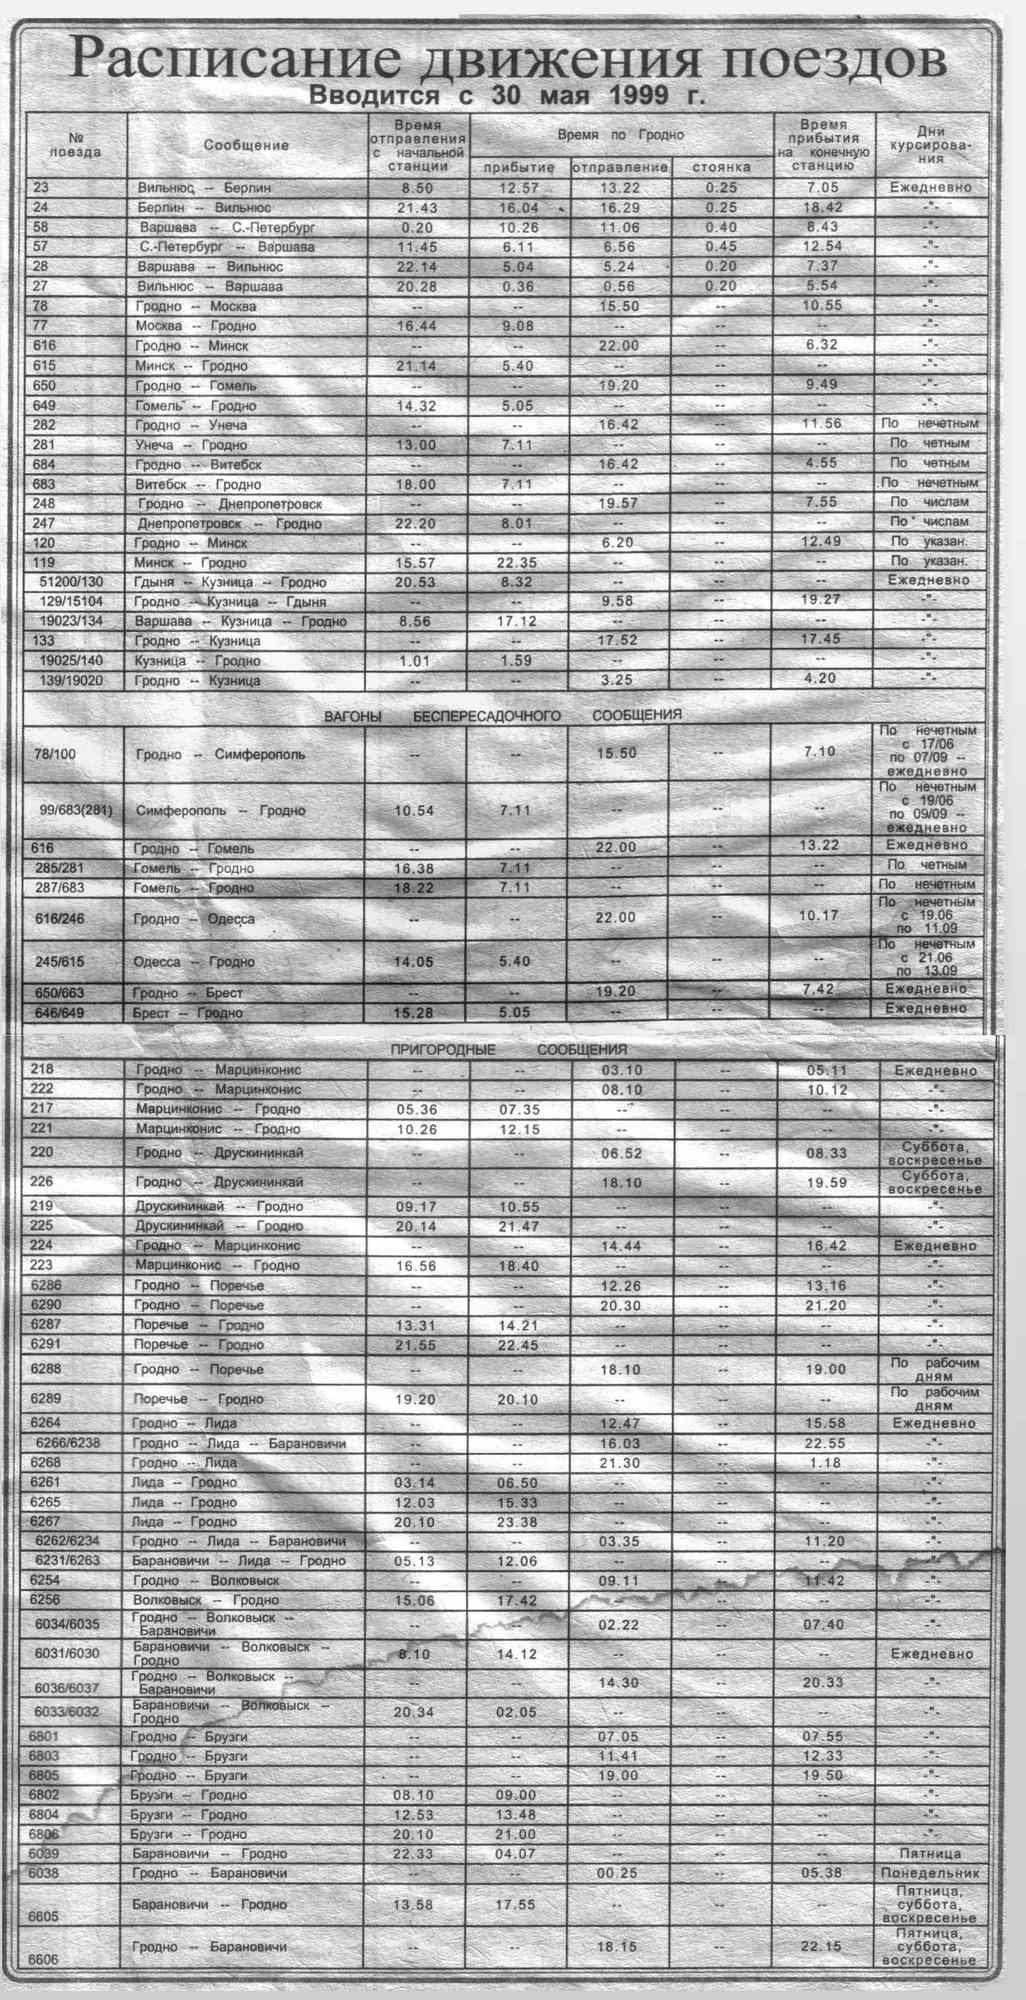 Расписание движения поездов
Вводится с 30 мая 1999 г.
№ поезда | Сообщение | Время отправления с начальной станции | Время по Гродно | Время прибытия на конечную станцию | Дни курсирова-ния
прибытие | отправление | стоянка
23 Вильнюс -- Берлин 8.50 12.57 13.22 0.25 7.05 Ежедневно
24 Берлин -- Вильнюс 21.43 16.04 16.29 0.25 18.42 -"-
58 Варшава -- С.-Петербург 0.20 10.26 11.06 0.40 8.43 -"-
57 С.-Петербург -- Варшава 11.45 6.11 6.56 0.45 12.54 -"-
28 Варшава -- Вильнюс 22.14 5.04 5.24 0.20 7.37 -"-
27 Вильнюс -- Варшава 20.28 0.36 0.56 0.20 5.54 -"-
78 Гродно -- Москва -- -- 15.50 -- 10.55 -"-
77 Москва -- Гродно 16.44 9.08 -- -- -- -"-
616 Гродно -- Минск -- -- 22.00 -- 6.32 -"-
615 Минск -- Гродно 21.14 5.40 -- -- -- -"-
650 Гродно -- Гомель -- -- 19.20 -- 9.49 -"-
649 Гомель -- Гродно 14.32 5.05 -- -- -- -"-
282 Гродно -- Унеча -- -- 16.42 -- 11.56 По нечетным
281 Унеча -- Гродно 13.00 7.11 -- -- -- По четным
684 Гродно -- Витебск -- -- 16.42 -- 4.55 По четным
683 Витебск -- Гродно 18.00 7.11 -- -- -- По нечетным
248 Гродно -- Днепропетровск -- -- 19.57 -- 7.55 По числам
247 Днепропетровск -- Гродно 22.20 8.01 -- -- -- По числам
120 Гродно -- Минск -- -- 6.20 -- 12.49 По указан.
119 Минск -- Гродно 15.57 22.35 -- -- -- По указан.
51200/130 Гдыня -- Кузница -- Гродно 20.53 8.32 -- -- -- Ежедневно
129/15104 Гродно -- Кузница -- Гдыня -- -- 9.58 -- 19.27 -"-
19023/134 Варшава -- Кузница -- Гродно 8.56 17.12 -- -- -- -"-
133 Гродно -- Кузница -- -- 17.52 -- 17.45 -"-
19025/140 Кузница -- Гродно 1.01 1.59 -- -- -- -"-
139/19020 Гродно -- Кузница -- -- 3.25 -- 4.20 -"-
ВАГОНЫ БЕСПЕРЕСАДОЧНОГО СООБЩЕНИЯ
78/100 Гродно -- Симферополь -- -- 15.50 -- 7.10 По нечетным
с 17/06
по 07/09 --
ежедневно
99/683(281) Симферополь -- Гродно 10.54 7.11 -- -- -- По нечетным
с 19/06
по 09/09 --
ежедневно
616 Гродно -- Гомель -- -- 22.00 -- 13.22 Ежедневно
285/281 Гомель -- Гродно 16.38 7.11 -- -- -- По четным
287/683 Гомель -- Гродно 18.22 7.11 -- -- -- По нечетным
616/246 Гродно -- Одесса -- -- 22.00 -- 10.17 По нечетным
с 19.06
по 11.09
245/615 Одесса -- Гродно 14.05 5.40 -- -- -- По нечетным
с 21.06
по 13.09
650/663 Гродно -- Брест -- -- 19.20 -- 7.42 Ежедневно
646/649 Брест -- Гродно 15.28 5.05 -- -- -- Ежедневно
ПРИГОРОДНЫЕ СООБЩЕНИЯ
218 Гродно -- Марцинконис -- -- 03.10 -- 05.11 Ежедневно
222 Гродно -- Марцинконис -- -- 08.10 -- 10.12 -"-
217 Марцинконис -- Гродно 05.36 07.35 -- -- -- -"-
221 Марцинконис -- Гродно 10.26 12.15 -- -- -- -"-
220 Гродно -- Друскининкай -- -- 06.52 -- 08.33 Суббота,
воскресенье
226 Гродно -- Друскининкай -- -- 18.10 -- 19.59 Суббота,
воскресенье
219 Друскининкай -- Гродно 09.17 10.55 -- -- -- -"-
225 Друскининкай -- Гродно 20.14 21.47 -- -- -- -"-
224 Гродно -- Марцинконис -- -- 14.44 -- 16.42 Ежедневно
223 Марцинконис -- Гродно 16.56 18.40 -- -- -- -"-
6286 Гродно -- Поречье -- -- 12.26 -- 13.16 -"-
6290 Гродно -- Поречье -- -- 20.30 -- 21.20 -"-
6287 Поречье -- Гродно 13.31 14.21 -- -- -- -"-
6291 Поречье -- Гродно 21.55 22.45 -- -- -- -"-
6288 Гродно -- Поречье -- -- 18.10 -- 19.00 По рабочим
дням
6289 Поречье -- Гродно 19.20 20.10 -- -- -- По рабочим
дням
6264 Гродно -- Лида -- -- 12.47 -- 15.58 Ежедневно
6266/6238 Гродно -- Лида -- Барановичи -- -- 16.03 -- 22.55 -"-
6268 Гродно -- Лида -- -- 21.30 -- 1.18 -"-
6261 Лида -- Гродно 03.14 06.50 -- -- -- -"-
6265 Лида -- Гродно 12.03 15.33 -- -- -- -"-
6267 Лида -- Гродно 20.10 23.38 -- -- -- -"-
6262/6234 Гродно -- Лида -- Барановичи -- -- 03.35 -- 11.20 -"-
6231/6263 Барановичи -- Лида -- Гродно 05.13 12.06 -- -- -- -"-
6254 Гродно -- Волковыск -- -- 09.11 -- 11.42 -"-
6256 Волковыск -- Гродно 15.06 17.42 -- -- -- -"-
6034/6035 Гродно -- Волковыск --
Барановичи -- -- 02.22 -- 07.40 -"-
6031/6030 Барановичи -- Волковыск --
Гродно 8.10 14.12 -- -- -- Ежедневно
6036/6037 Гродно -- Волковыск --
Барановичи -- -- 14.30 -- 20.33 -"-
6033/6032 Барановичи -- Волковыск --
Гродно 20.34 02.05 -- -- -- -"-
6801 Гродно -- Брузги -- -- 07.05 -- 07.55 -"-
6803 Гродно -- Брузги -- -- 11.41 -- 12.33 -"-
6805 Гродно -- Брузги -- -- 19.00 -- 19.50 -"-
6802 Брузги -- Гродно 08.10 09.00 -- -- -- -"-
6804 Брузги -- Гродно 12.53 13.48 -- -- -- -"-
6806 Брузги -- Гродно 20.10 21.00 -- -- -- -"-
6039 Барановичи -- Гродно 22.33 04.07 -- -- -- Пятница
6038 Гродно -- Барановичи -- -- 00.25 -- 05.38 Понедельник
6605 Барановичи -- Гродно 13.58 17.55 -- -- -- Пятница,
суббота,
воскресенье
6606 Гродно -- Барановичи -- -- 18.15 -- 22.15 Пятница,
суббота,
воскресенье